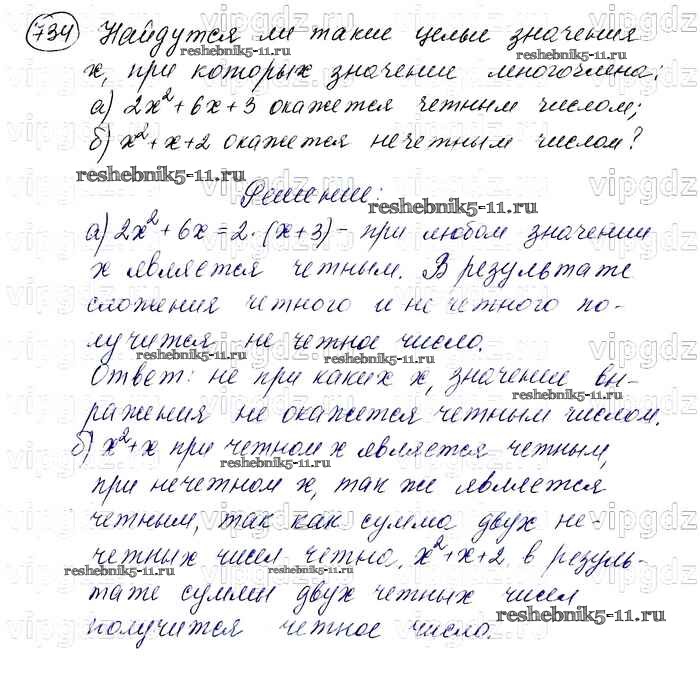 734 Найдутся ли такие целые значения
reshebnik5-11.ru
x, при которых значение многочлена:
а) 2x²+6x+3 окажется четным числом;
б) x²+x+2 окажется нечетным числом?
reshebnik5-11.ru
Решение:
reshebnik5-11.ru
а) 2x²+6x=2·(x+3) – при любом значении
x является четным. В результате
сложения четного и не четного по-
лучится не четное число.
reshebnik5-11.ru reshebnik5-11.ru
Ответ: не при каких x, значение вы-
reshebnik5-11.ru
ражения не окажется четным числом.
б) x²+x при четном x является четным,
reshebnik5-11.ru
при нечетном x, так же является
четным, так как сумма двух не-
reshebnik5-11.ru
четных чисел четно, x²+x+2 в резуль-
reshebnik5-11.ru
тате суммы двух четных чисел
reshebnik5-11.ru
получится четное число.